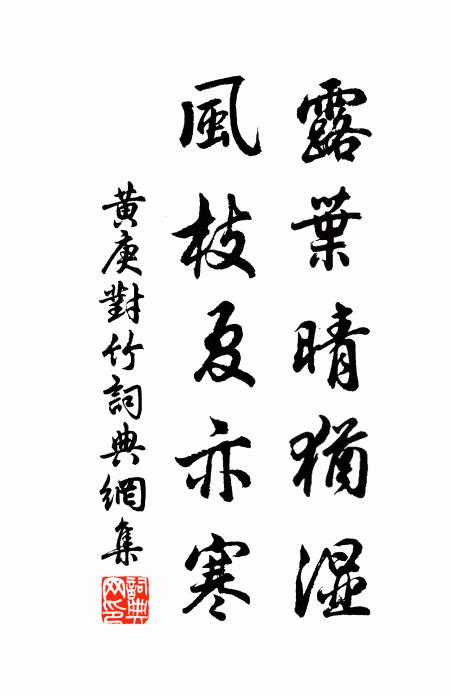 露葉晴猶濕
風枝夏亦寒
黄庚對竹詞典網集
詞典
网印